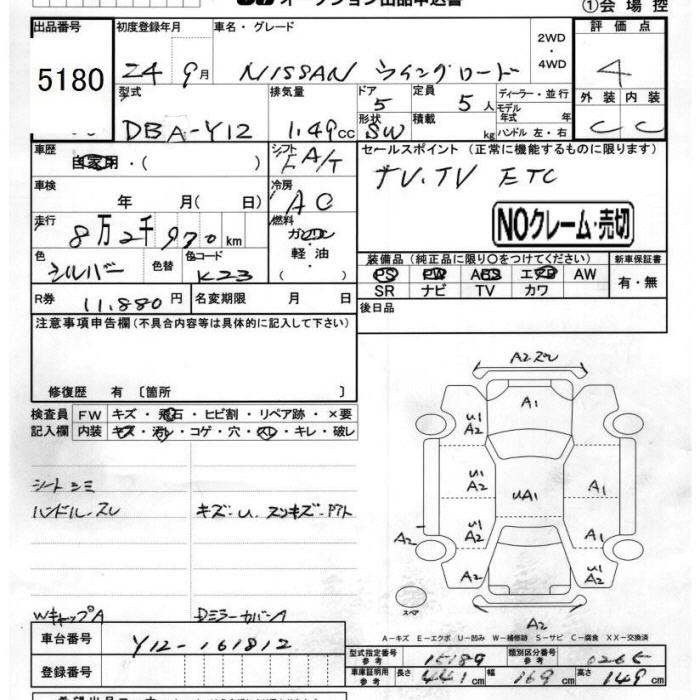 オークション出品申込書
①会 場 控
出品番号 5180
初度登録年月 24 9月
車名・グレード NISSAN ウイングロード
2WD ・ 4WD
評 価 点 4
外 装 C 内 装 C
型式 DBA-Y12
排気量 1.49cc
ドア 5 形状 SW
定員 5人
積載 kg
ディーラー・並行
モデル年式 年
ハンドル 左・右
車歴 自家用 ・( )
シフト FA/T
セールスポイント (正常に機能するものに限ります)
TV.TV ETC
車検 年 月( 日)
冷房 AC
NOクレーム・売切
走行 8万2千970km
燃料 ガソリン ・ 軽 油 ・ ( )
色 シルバー 色替 色コード K23
装備品 (純正品に限り○をつけてください)
新車保証書
PS PW ABS エアB AW
有・無
SR ナビ TV カワ
R券 11.880円
名変期限 月 日
後日品
注意事項申告欄 (不具合内容等は具体的に記入して下さい)
修復歴 有 〔箇所 〕
検査員記入欄
FW キズ・飛石・ヒビ割・リペア跡・×要
内装 キズ・汚レ・コゲ・穴・スレ・キレ・破レ
シートシミ
ハンドルスレ キズ・U
WキャップA DミラーカバーA
A2スレ
A1
U1 A2
U1 A2
UA1
A1
U1 A2
A2
A1
A2
U1 A2
スペア
A2
A-キズ E-エクボ U-凹み W-補修跡 S-サビ C-腐食 XX-交換済
車台番号 Y12-161812
登録番号
型式指定番号 参考 15189
類別区分番号 参考
車庫証明用 参考 長さ 441cm 幅 169cm 高さ 149cm